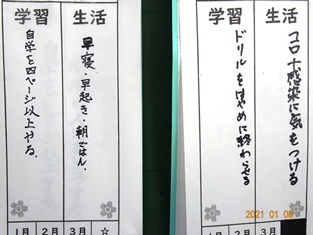 学習 生活
早寝・早起き・朝ごはん。
自学を四ページ以上やる。
1月 2月 3月 ☆
学習 生活
コロナ感染に気をつける
ドリルをはやめに終わらせる
1月 2月 3月
2021 01 08